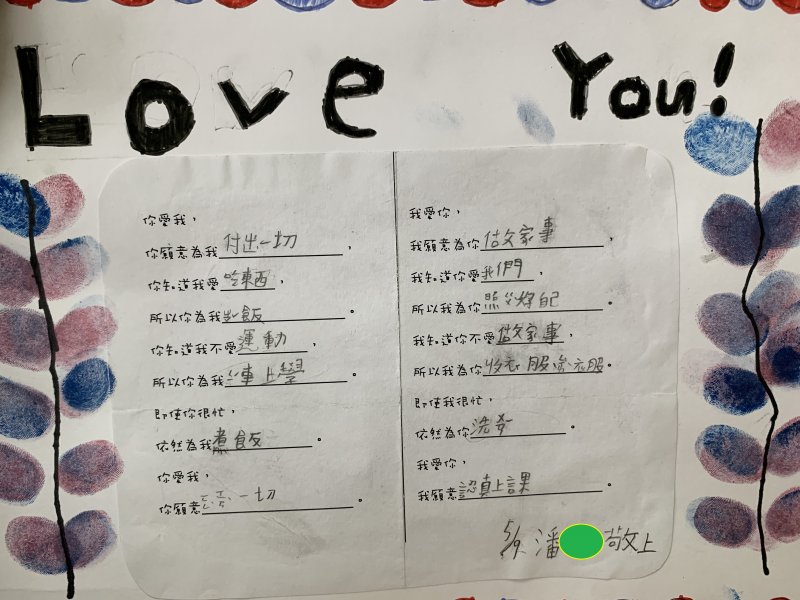 Love You!
你愛我，
你願意為我付出一切，
你知道我愛吃東西，
所以你為我煮飯。
你知道我不愛運動，
所以你為我 車上學。
即使你很忙，
依然為我煮飯。
你愛我，
你願意 一切。
我愛你，
我願意為你做家事，
我知道你愛我們，
所以我為你照 好自己。
我知道你不愛做家事，
所以我為你收衣服 衣服。
即使我很忙，
依然為你洗 。
我愛你，
我願意認真上課。
5/9. 潘 敬上